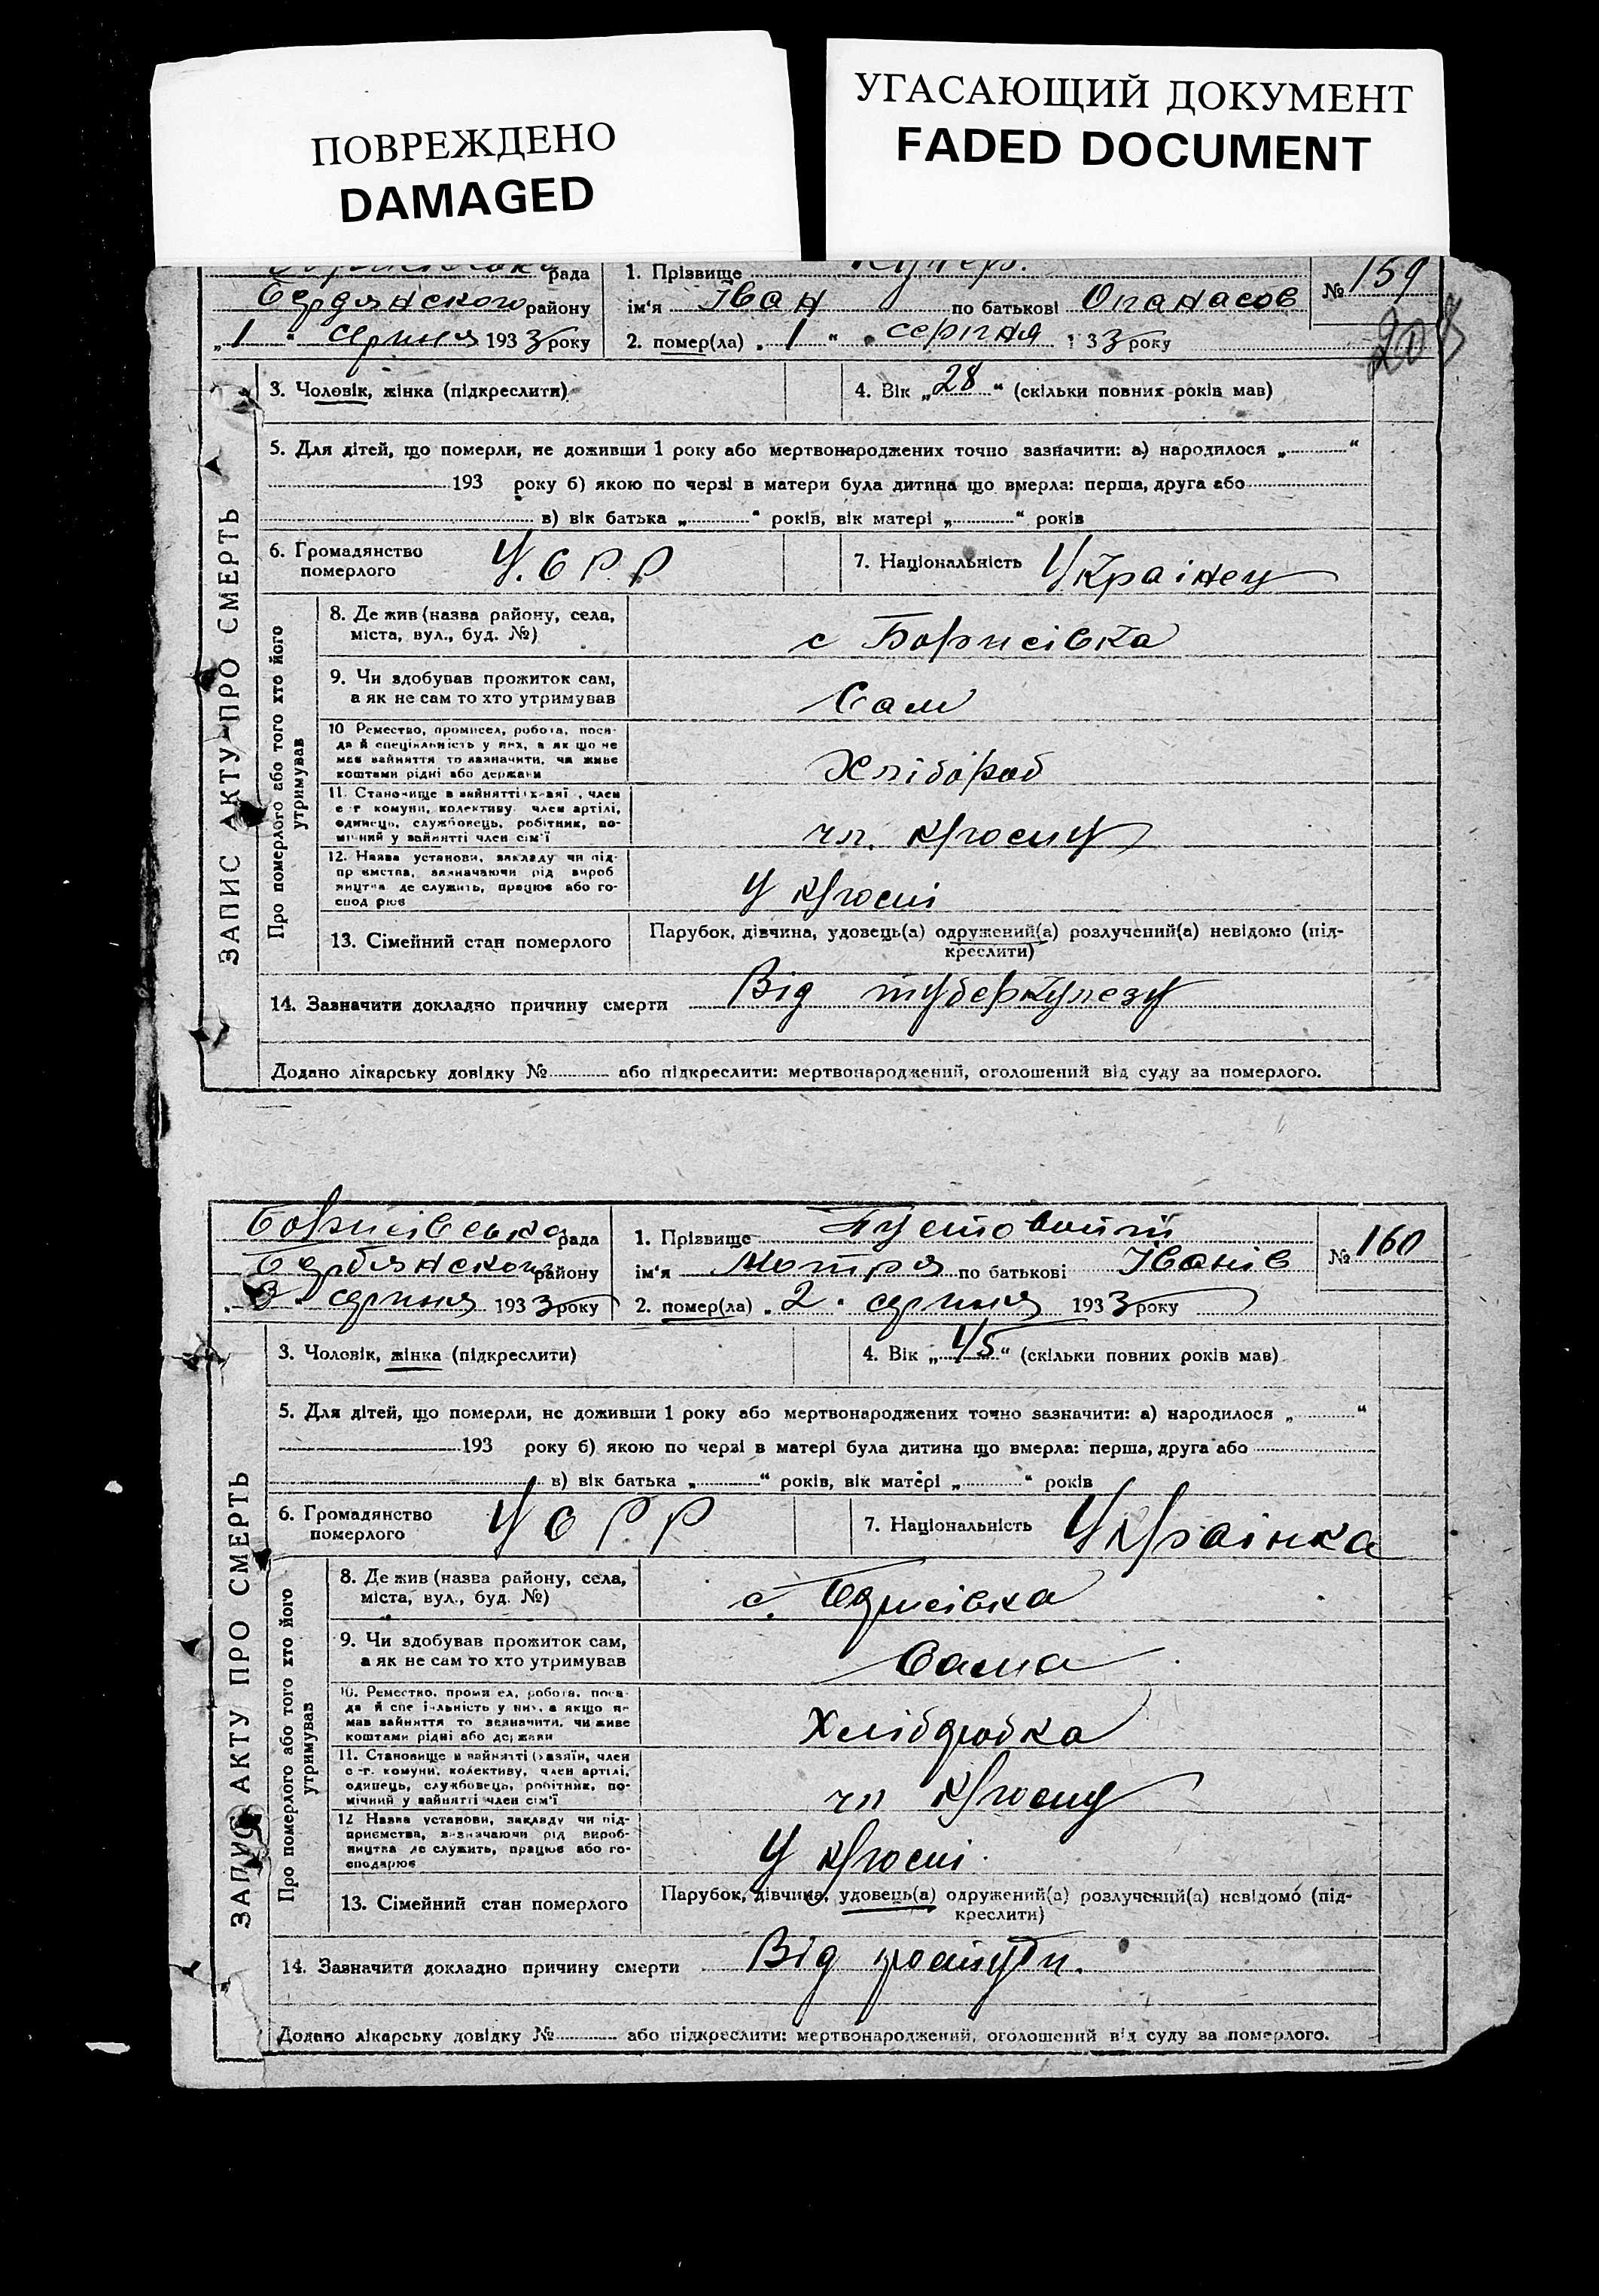 ПОВРЕЖДЕНО
DAMAGED
УГАСАЮЩИЙ ДОКУМЕНТ
FADED DOCUMENT
рада
1. Прізвище
№ 159
Бердянского району
ім'я Іван по батькові Опанасов
208
„1“ серпня 1933 року
2. помер(ла) „1“ серпня 33 року
3. Чоловік, жінка (підкреслити)
4. Вік „28“ (скільки повних років мав)
5. Для дітей, що померли, не доживши 1 року або мертвонароджених точно зазначити: а) народилося „ “
193 року б) якою по черзі в матери була дитина що вмерла: перша, друга або
в) вік батька „ “ років, вік матері „ “ років
6. Громадянство померлого У.С.Р.Р
7. Національність Українец
ЗАПИС АКТУ ПРО СМЕРТЬ
Про померлого або того хто його утримував
8. Де жив (назва району, села,
міста, вул., буд. №)
с Борисівка
9. Чи здобував прожиток сам,
а як не сам то хто утримував
Сам
10 Ремество, промисел, робота, поса-
да й спеціяльність у них, а як що не
мав зайняття то зазначити, чи живе
коштами рідні або держави
Хлібороб
11. Становище в зайнятті член
с-г комуни, колективу член артілі,
одинець, службовець, робітник, по-
мічний у зайнятті член сім'ї
чл.
12. Назва установи, закладу чи під-
приємства, зазначаючи рід вироб
ництва де служить, працює або го-
спод рює
У
13. Сімейний стан померлого
Парубок, дівчина, удовець(а) одружений(а) розлучений(а) невідомо (під-
креслити)
14. Зазначити докладно причину смерти Від туберкулезу
Додано лікарську довідку № або підкреслити: мертвонароджений, оголошений від суду за померлого.
Борисівська рада
1. Прізвище Пустовойт
№ 160
Бердянского району
ім'я Мотря по батькові Іванів
„3“ серпня 1933 року
2. помер(ла) „2“ серпня 1933 року
3. Чоловік, жінка (підкреслити)
4. Вік „45“ (скільки повних років мав)
5. Для дітей, що померли, не доживши 1 року або мертвонароджених точно зазначити: а) народилося „ “
193 року б) якою по черзі в матері була дитина що вмерла: перша, друга або
в) вік батька „ “ років, вік матері „ “ років
6. Громадянство померлого УСРР
7. Національність Українка
ЗАПИС АКТУ ПРО СМЕРТЬ
Про померлого або того хто його утримував
8. Де жив (назва району, села,
міста, вул., буд. №)
с. Борисівка
9. Чи здобував прожиток сам,
а як не сам то хто утримував
Сама
10. Ремество, промисел, робота, поса-
да й спеціяльність у них, а якщо не
мав зайняття то зазначити, чи живе
коштами рідні або держави
Хліборобка
11. Становище в зайнятті (хазяїн, член
с-г. комуни, колективу, член артілі,
одинець, службовець, робітник, по-
мічний у зайнятті член сім'ї
чл
12 Назва установи, закладу чи під-
приємства, зазначаючи рід вироб-
ництва де служить, працює або го-
сподарює
У
13. Сімейний стан померлого
Парубок, дівчина, удовець(а) одружений(а) розлучений(а) невідомо (під-
креслити)
14. Зазначити докладно причину смерти Від простуди.
Додано лікарську довідку № або підкреслити: мертвонароджений, оголошений від суду за померлого.